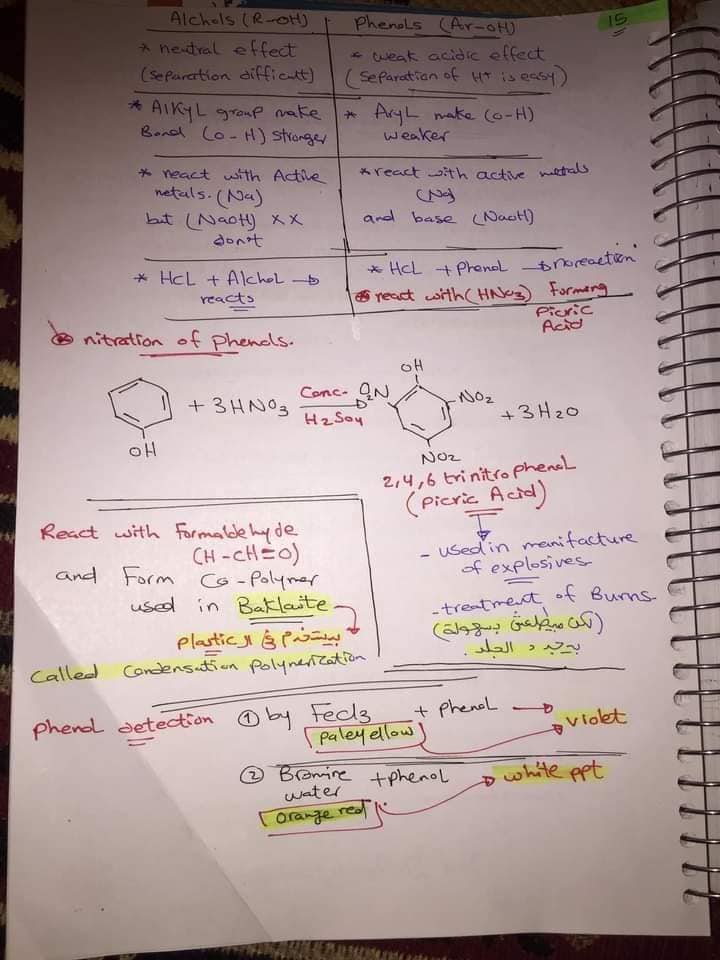 15
Alchols (R-OH)
Phenols (Ar-OH)
* neutral effect
(separation difficutt)
* weak acidic effect
(separation of H+ is easy)
* AlkyL group make
Bond (O-H) stronger
* AryL make (O-H)
weaker
* react with Active
metals. (Na)
but (NaOH) XX
don't
* react with active metals
(Na)
and base (NaOH)
* HcL + Alchol →
reacts
* HcL + Phenol → noreaction
* react with (HNO3) Forming
Picric
Acid
* nitration of phenols.
OH
+ 3HNO3
Conc.
H2SO4
OH
O2N
NO2
NO2
+ 3H2O
2,4,6 trinitrophenol
(picric Acid)
- used in manifacture
of explosives
- treatment of Burns.
(لكن مبيطلعش بسهولة)
الجلد
React with Formaldehyde
(H-CH=O)
and Form Co-Polymer
used in Baklaite
بيستخدم في ال plastic
Called Condensation Polymerization
phenol detection
① by Fecl3 + phenol → violet
paleyellow
② Bromine + phenol → white ppt
water
orange red